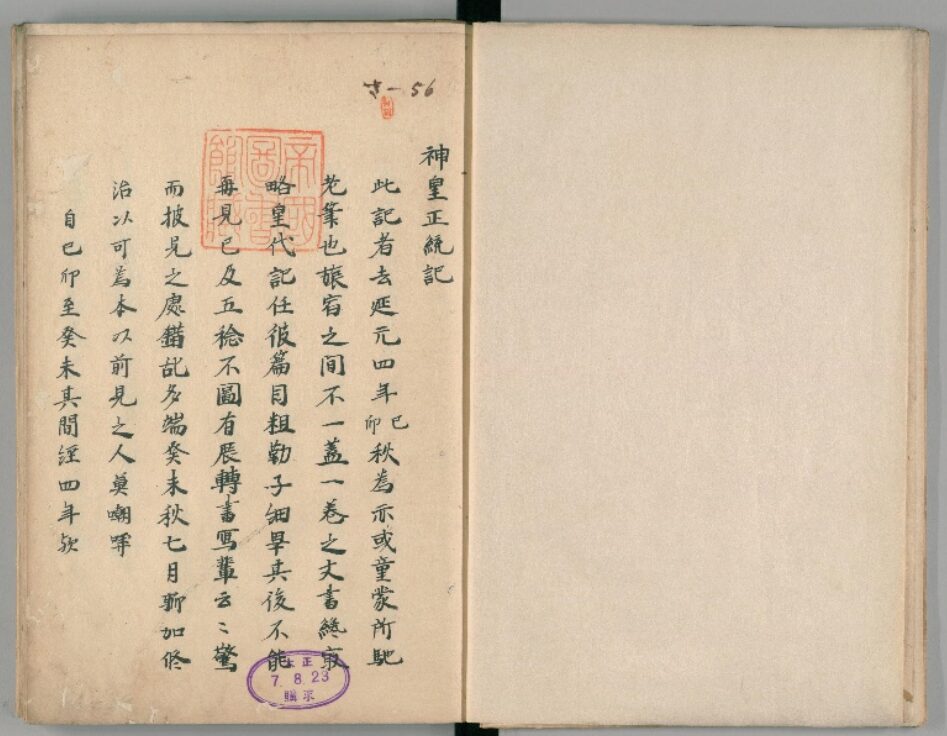 -56
帝國
圖書
館藏
神皇正統記
此記者去延元四年己卯秋為示或童蒙所馳
老筆也旅宿之間不一蓋一巻之文書纔㝡
略皇代記任彼篇目粗勒子細畢其後不能
再見已及五稔不圖有展轉書写輩云〻驚
而披見之處錯乱多端癸未秋七月聊加修
治以可為本以前見之人莫嘲哢
自己卯至癸未其間経四年歟
大正
7.8.23
購求